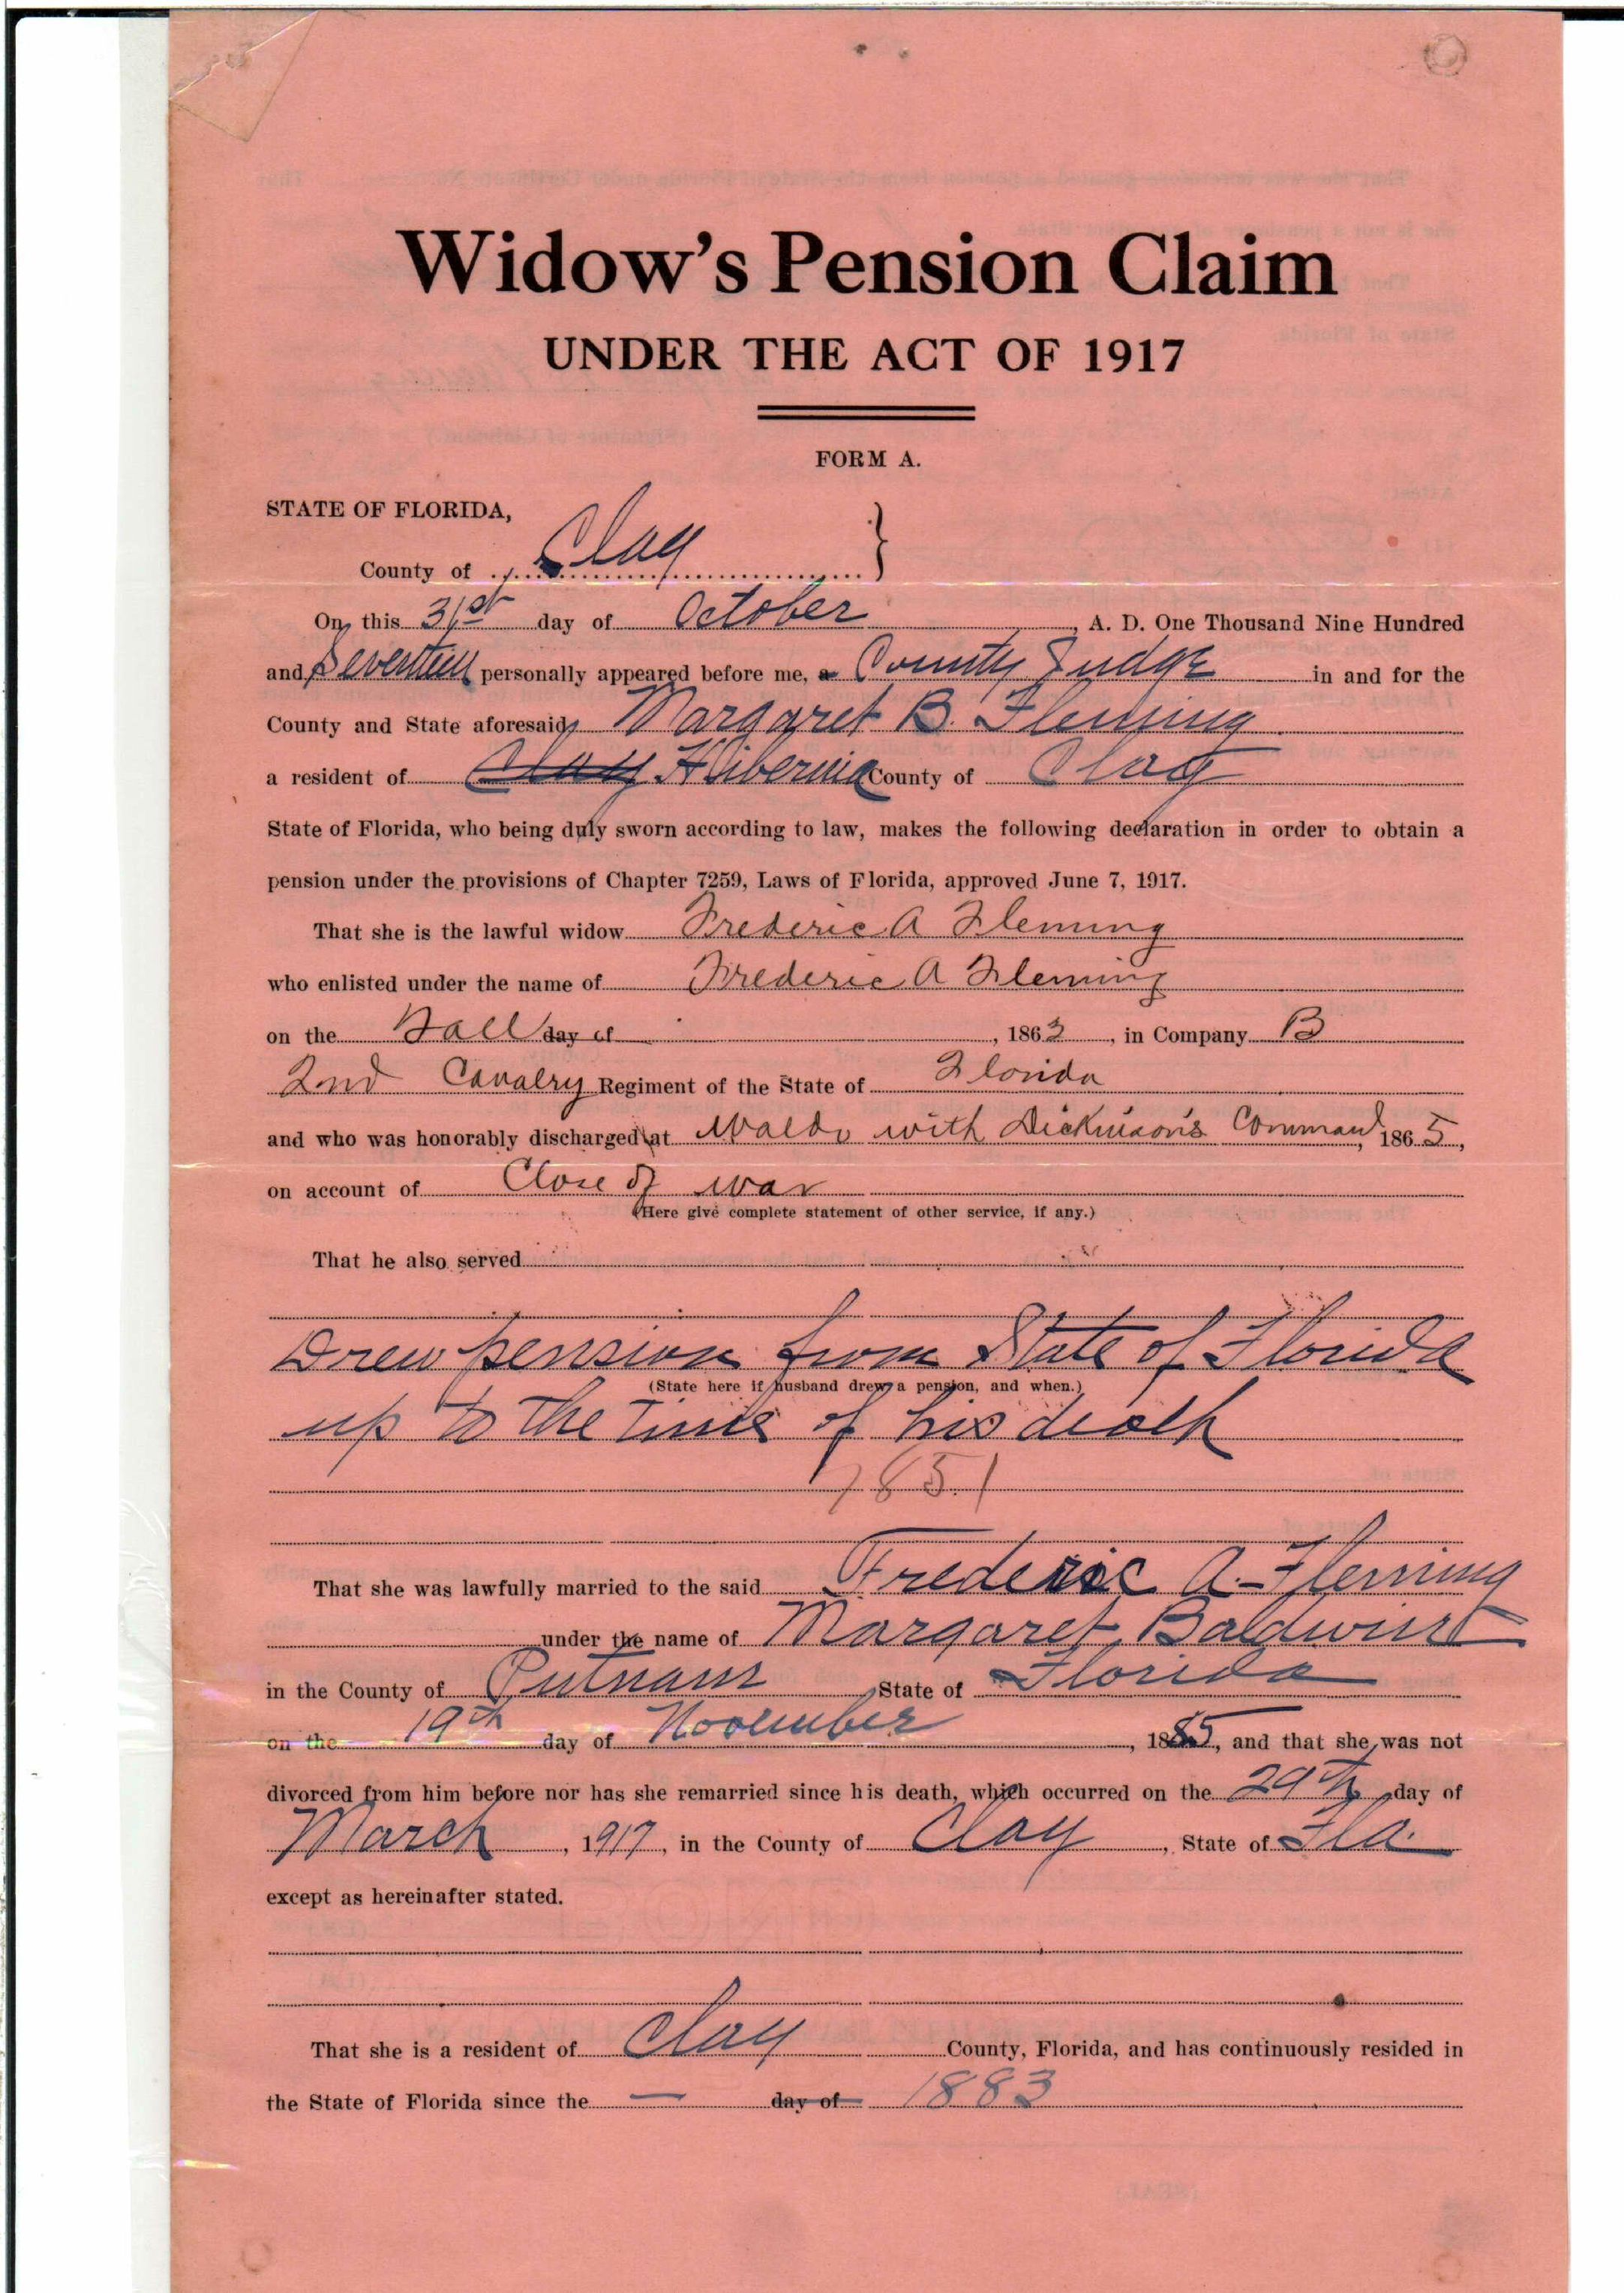 Widow's Pension Claim
UNDER THE ACT OF 1917
FORM A.
STATE OF FLORIDA,
County of Clay }
On this 31st day of October, A. D. One Thousand Nine Hundred
and Seventeen personally appeared before me, a County Judge in and for the
County and State aforesaid, Margaret B. Fleming
a resident of Clay Hibernia County of Clay
State of Florida, who being duly sworn according to law, makes the following declaration in order to obtain a
pension under the provisions of Chapter 7259, Laws of Florida, approved June 7, 1917.
That she is the lawful widow Frederic A Fleming
who enlisted under the name of Frederic A Fleming
on the Fall day of , 1863, in Company B
2nd Cavalry Regiment of the State of Florida
and who was honorably discharged at Waldo with Dickinson's Command, 1865,
on account of Close of war
(Here give complete statement of other service, if any.)
That he also served
Drew pension from State of Florida
(State here if husband drew a pension, and when.)
up to the time of his death
7851
That she was lawfully married to the said Frederic A. Fleming
under the name of Margaret Baldwin
in the County of Putnam State of Florida
on the 19th day of November, 1885, and that she was not
divorced from him before nor has she remarried since his death, which occurred on the 29th day of
March, 1917, in the County of Clay, State of Fla.
except as hereinafter stated.
That she is a resident of Clay County, Florida, and has continuously resided in
the State of Florida since the — day of 1883